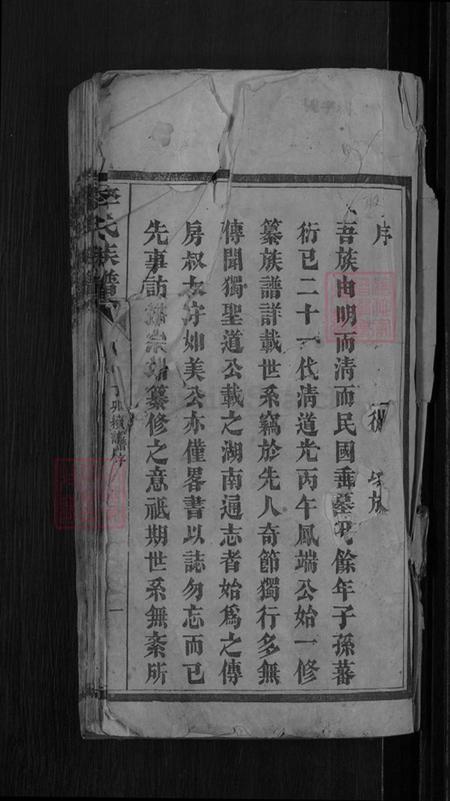 序
吾族由明而清而民國垂餘年子孫蕃
衍已二十一代清道光丙午鳳端公始一修
纂族譜詳載世系竊於先人奇節獨行多無
傳聞獨聖道公載之湖南通志者始爲之傳
房叔友守如美公亦僅畧書以誌勿忘而已
先事訪宗端纂修之意祇期世系無紊所
李氏族譜
丁卯續譜序
一